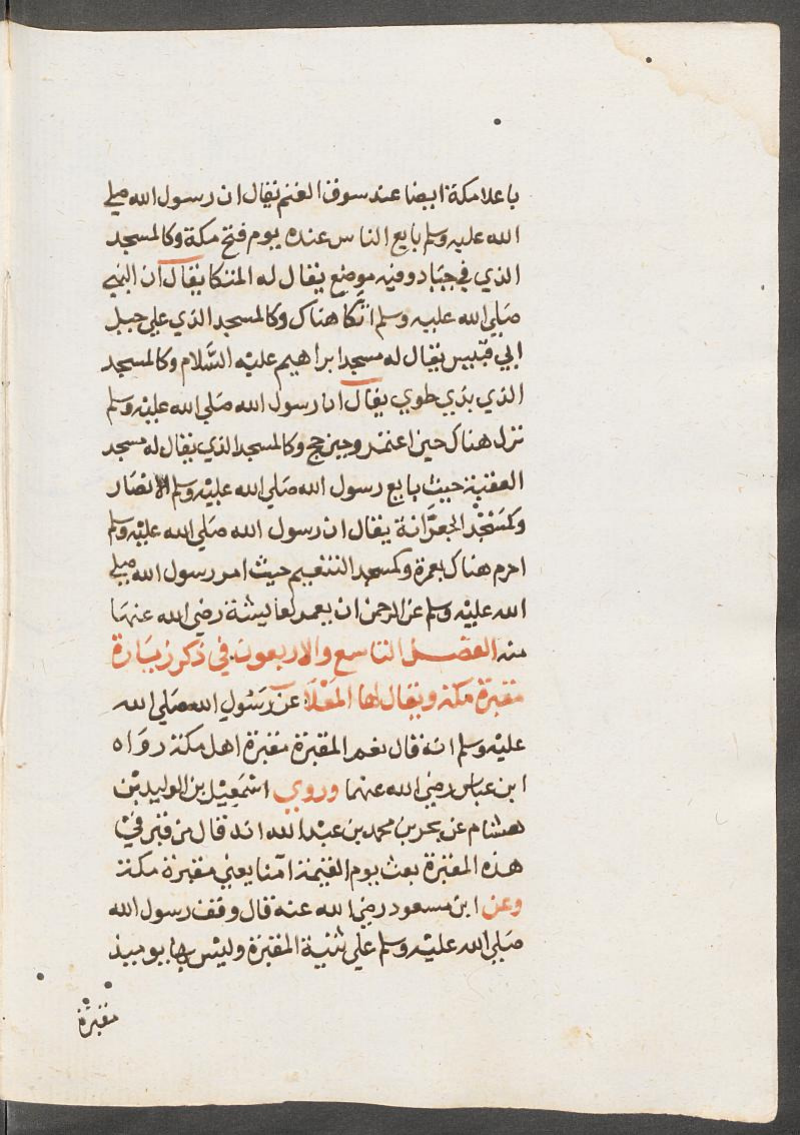 باعلا مكة ايضا عند سوق الغنم يقال ان رسول الله صلي
الله عليه وسلم بايع الناس عنده يوم فتح مكة وكالمسجد
الذي في جياد وفيه موضع يقال له المتكا يقال ان النبي
صلي الله عليه وسلم اتكا هناك وكالمسجد الذي علي جبل
ابي قبيس يقال له مسجد ابراهيم عليه السلام وكالمسجد
الذي بذي طوي يقال ان رسول الله صلي الله عليه وسلم
نزل هناك حين اعتمر وحين حج وكالمسجد الذي يقال له مسجد
العقبة حيث بايع رسول الله صلي الله عليه وسلم الانصار
وكمسجد الجعرانة يقال ان رسول الله صلي الله عليه وسلم
احرم هناك بعمرة وكمسجد التنعيم حيث امر رسول الله صلي
الله عليه وسلم عبد الرحمن ان يعمر لعايشة رضي الله عنها
منه الفصل التاسع والاربعون في ذكر زيارة
مقبرة مكة ويقال لها المعلا عن رسول الله صلي الله
عليه وسلم انه قال نعم المقبرة مقبرة اهل مكة رواه
ابن عباس رضي الله عنهما وروي اسمعيل بن الوليد بن
هشام عن يحي بن محمد بن عبد الله انه قال من قبر في
هذه المقبرة بعث يوم القيمة آمنا يعني مقبرة مكة
وعن ابن مسعود رضي الله عنه قال وقف رسول الله
صلي الله عليه وسلم علي ثنية المقبرة وليس بها يوميذ
مقبرة